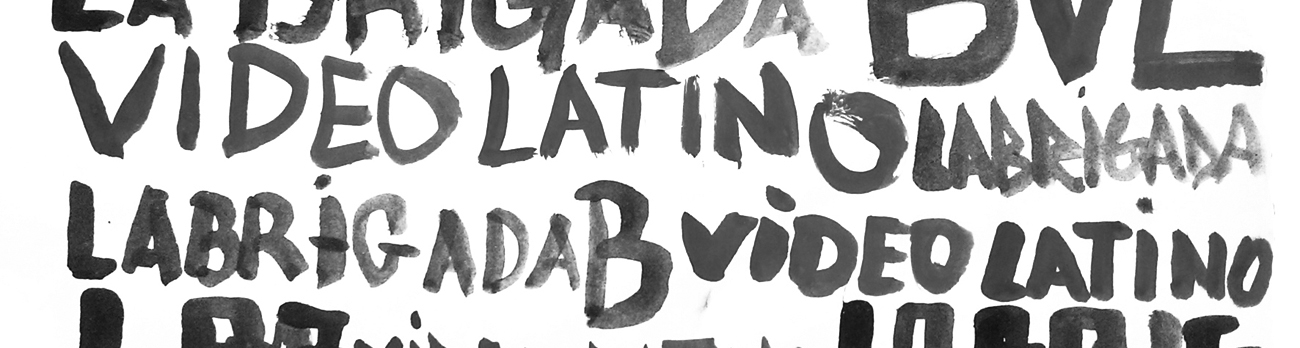 LA BRIGADA BVL
VIDEO LATINO LABRiGADA
LABRiGADA B ViDEO LATiNO